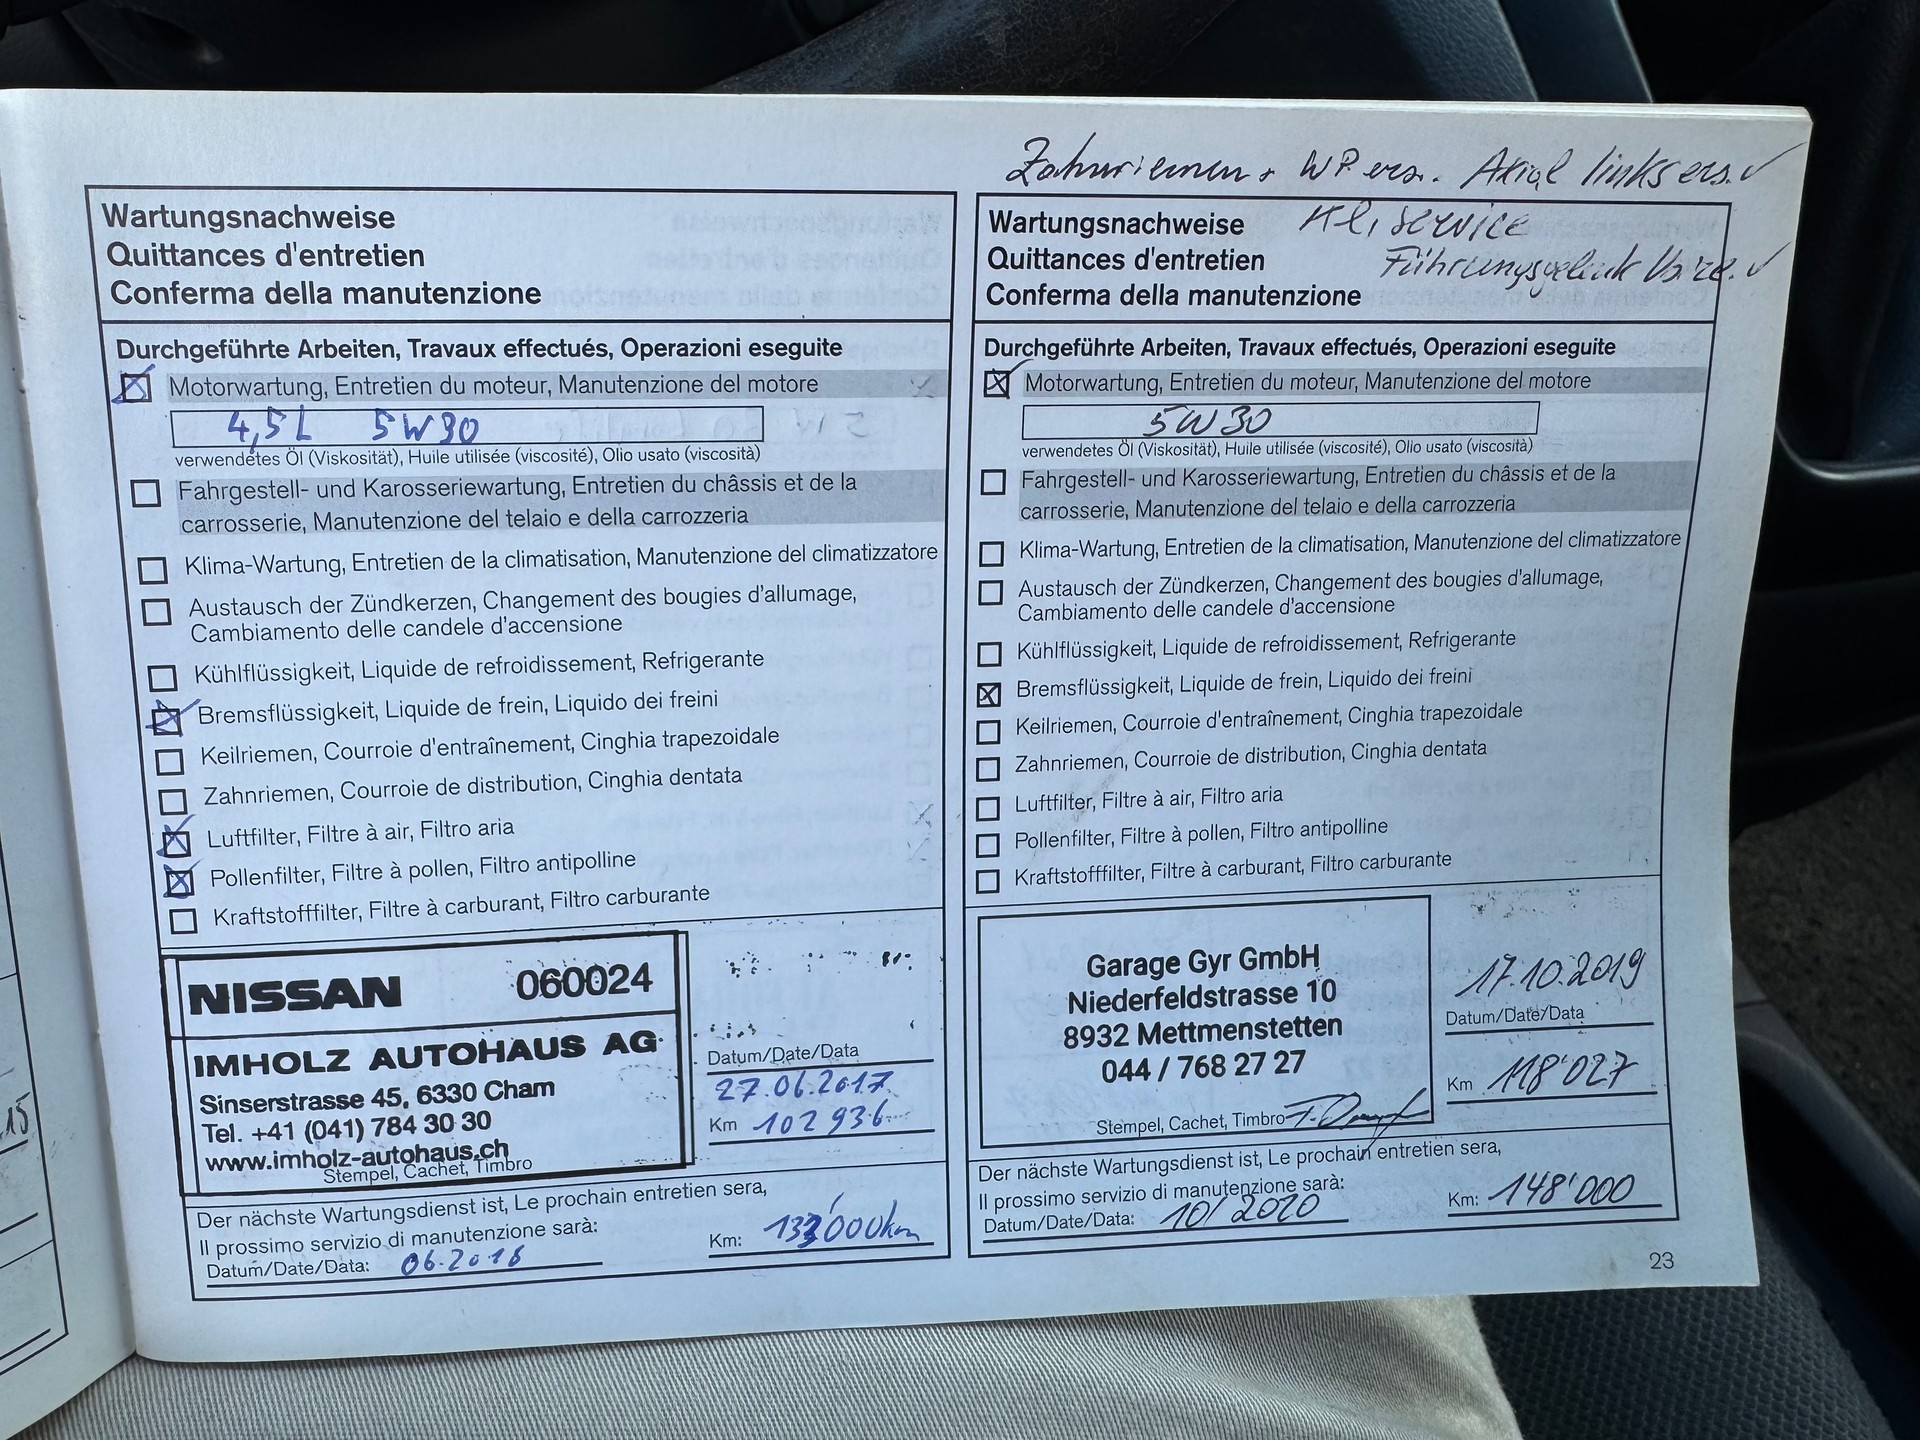 Zahnriemen + WP ers. Axial links ers. ✓
Kl. Service
Führungsgelenk
Wartungsnachweise
Quittances d'entretien
Conferma della manutenzione
Durchgeführte Arbeiten, Travaux effectués, Operazioni eseguite
Motorwartung, Entretien du moteur, Manutenzione del motore
4,5 L 5W30
verwendetes Öl (Viskosität), Huile utilisée (viscosité), Olio usato (viscosità)
Fahrgestell- und Karosseriewartung, Entretien du châssis et de la
carrosserie, Manutenzione del telaio e della carrozzeria
Klima-Wartung, Entretien de la climatisation, Manutenzione del climatizzatore
Austausch der Zündkerzen, Changement des bougies d'allumage,
Cambiamento delle candele d'accensione
Kühlflüssigkeit, Liquide de refroidissement, Refrigerante
Bremsflüssigkeit, Liquide de frein, Liquido dei freini
Keilriemen, Courroie d'entraînement, Cinghia trapezoidale
Zahnriemen, Courroie de distribution, Cinghia dentata
Luftfilter, Filtre à air, Filtro aria
Pollenfilter, Filtre à pollen, Filtro antipolline
Kraftstofffilter, Filtre à carburant, Filtro carburante
NISSAN 060024
IMHOLZ AUTOHAUS AG
Sinserstrasse 45, 6330 Cham
Tel. +41 (041) 784 30 30
www.imholz-autohaus.ch
Stempel, Cachet, Timbro
Datum/Date/Data
27.06.2017
Km 102 936
Der nächste Wartungsdienst ist, Le prochain entretien sera,
Il prossimo servizio di manutenzione sarà:
Datum/Date/Data: 06.2018
Km: 133'000km
Wartungsnachweise
Quittances d'entretien
Conferma della manutenzione
Durchgeführte Arbeiten, Travaux effectués, Operazioni eseguite
Motorwartung, Entretien du moteur, Manutenzione del motore
5W30
verwendetes Öl (Viskosität), Huile utilisée (viscosité), Olio usato (viscosità)
Fahrgestell- und Karosseriewartung, Entretien du châssis et de la
carrosserie, Manutenzione del telaio e della carrozzeria
Klima-Wartung, Entretien de la climatisation, Manutenzione del climatizzatore
Austausch der Zündkerzen, Changement des bougies d'allumage,
Cambiamento delle candele d'accensione
Kühlflüssigkeit, Liquide de refroidissement, Refrigerante
Bremsflüssigkeit, Liquide de frein, Liquido dei freini
Keilriemen, Courroie d'entraînement, Cinghia trapezoidale
Zahnriemen, Courroie de distribution, Cinghia dentata
Luftfilter, Filtre à air, Filtro aria
Pollenfilter, Filtre à pollen, Filtro antipolline
Kraftstofffilter, Filtre à carburant, Filtro carburante
Garage Gyr GmbH
Niederfeldstrasse 10
8932 Mettmenstetten
044 / 768 27 27
Stempel, Cachet, Timbro
17.10.2019
Datum/Date/Data
Km 118'027
Der nächste Wartungsdienst ist, Le prochain entretien sera,
Il prossimo servizio di manutenzione sarà:
Datum/Date/Data: 10/2020
Km: 148'000
23
15